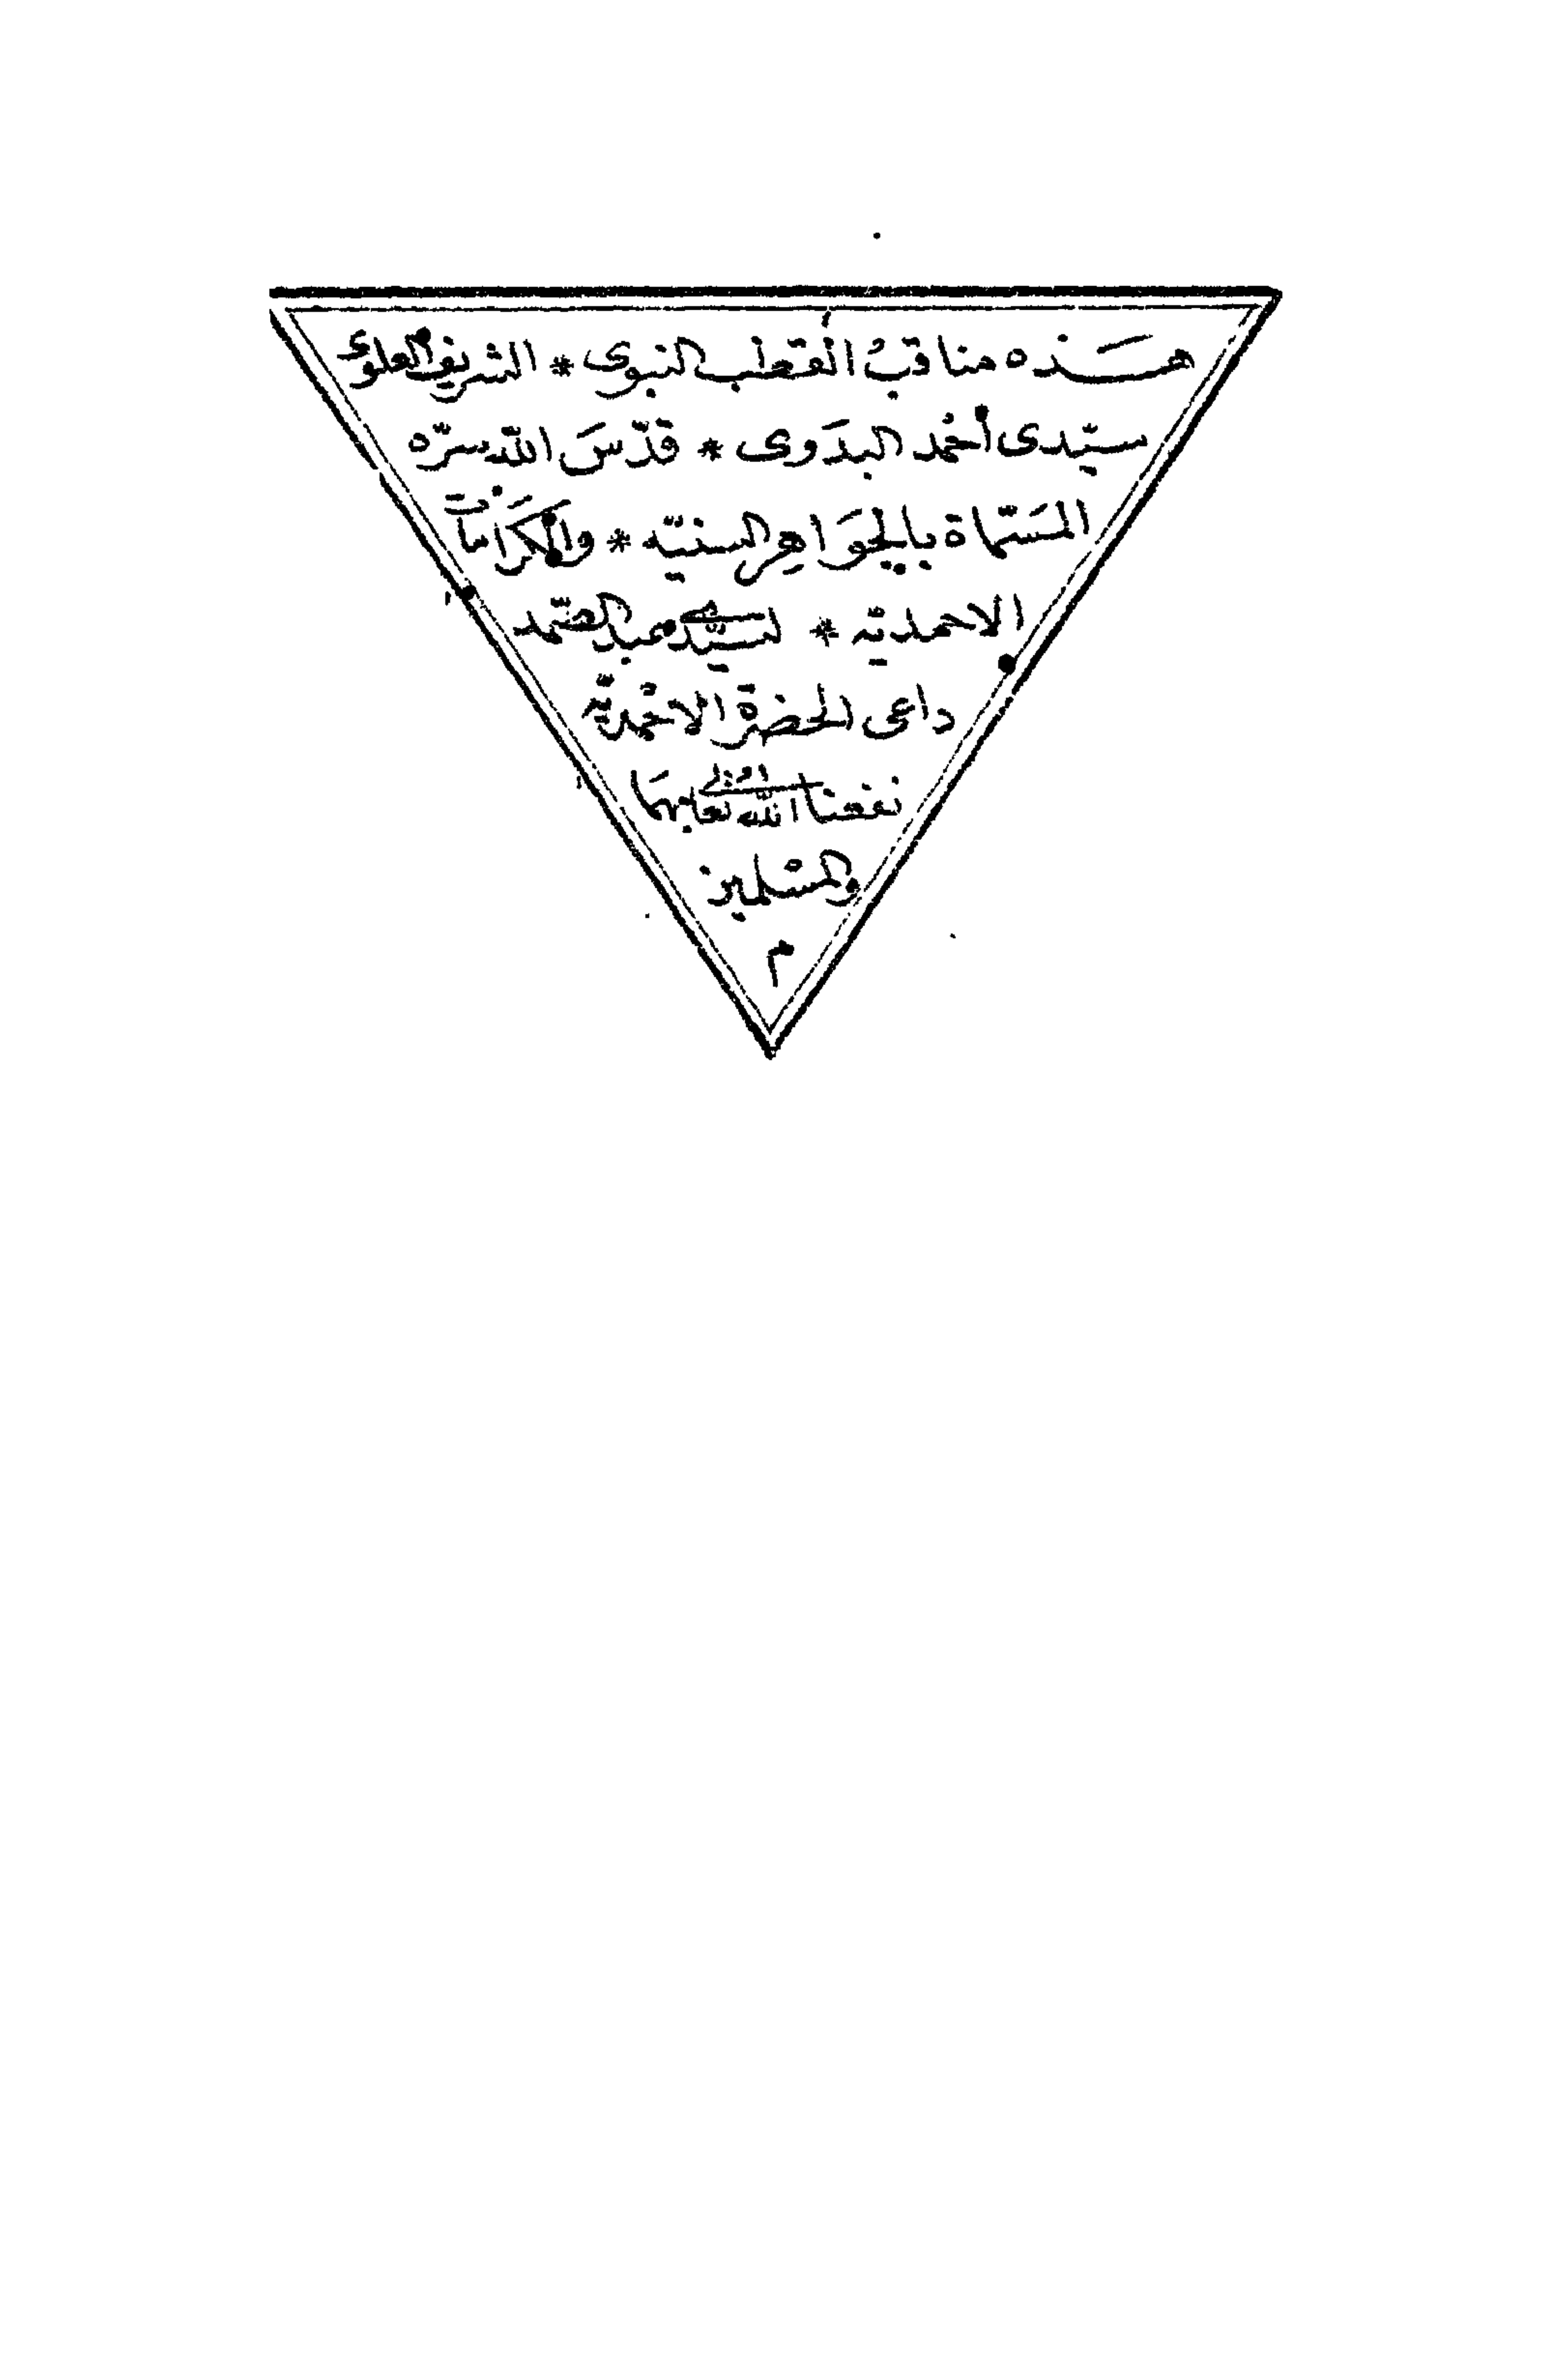 هَذه مناقبُ القطب النبوى * الشريف العلوى
سيّدى أحْمد البدَوى * قدّسَ اللّه سرّه
المسَمّاة بالجوَاهِر السنيّه * والكَرَامَات
الاحمديّه * لسيّدى عبد الصّمد
داعى الحضرة الاحْمديّه
نفعنا اللّه تعالى بهمَا
والمسْلمين
م